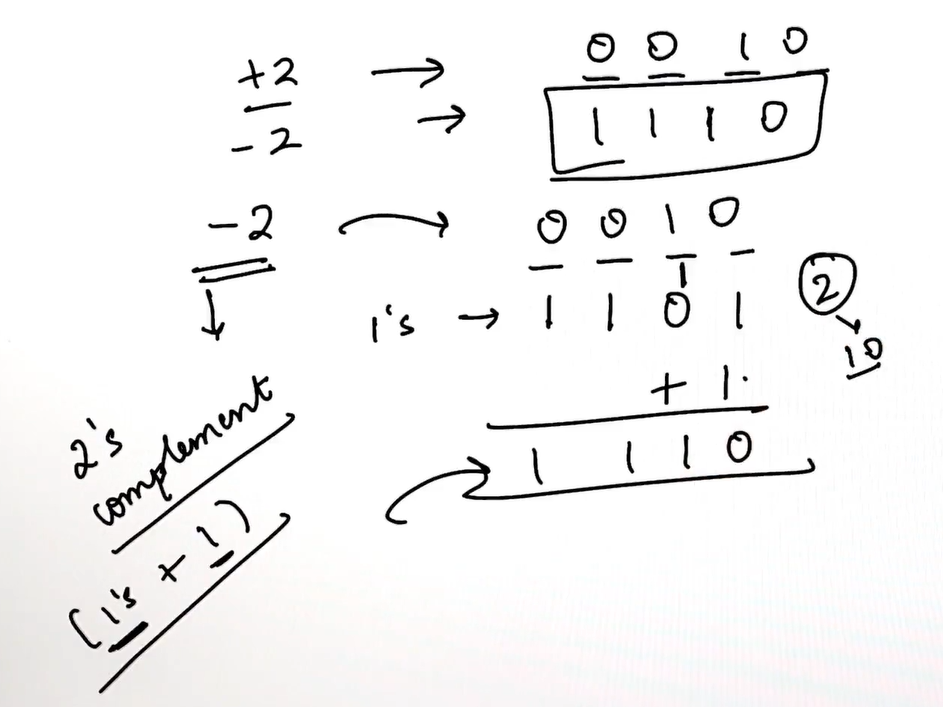 +2 → 0 0 1 0
-2 → 1 1 1 0
-2 → 0 0 1 0
1's → 1 1 0 1
2 → 10
+ 1
1 1 1 0
2's complement
(1's + 1)